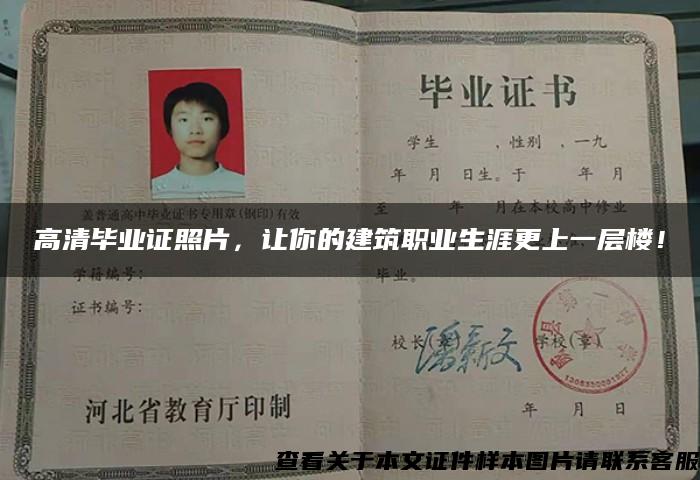 毕业证书
学生 ，性别 ，一九
年 月 日生。于 年 月
至 年 月在本校高中修业
盖普通高中毕业证书专用章(钢印)有效
高清毕业证照片，让你的建筑职业生涯更上一层楼！
学籍编号：
毕业。
证书编号：
校长(章)
学校(章)
河北省教育厅印制
年 月 日
查看关于本文证件样本图片请联系客服